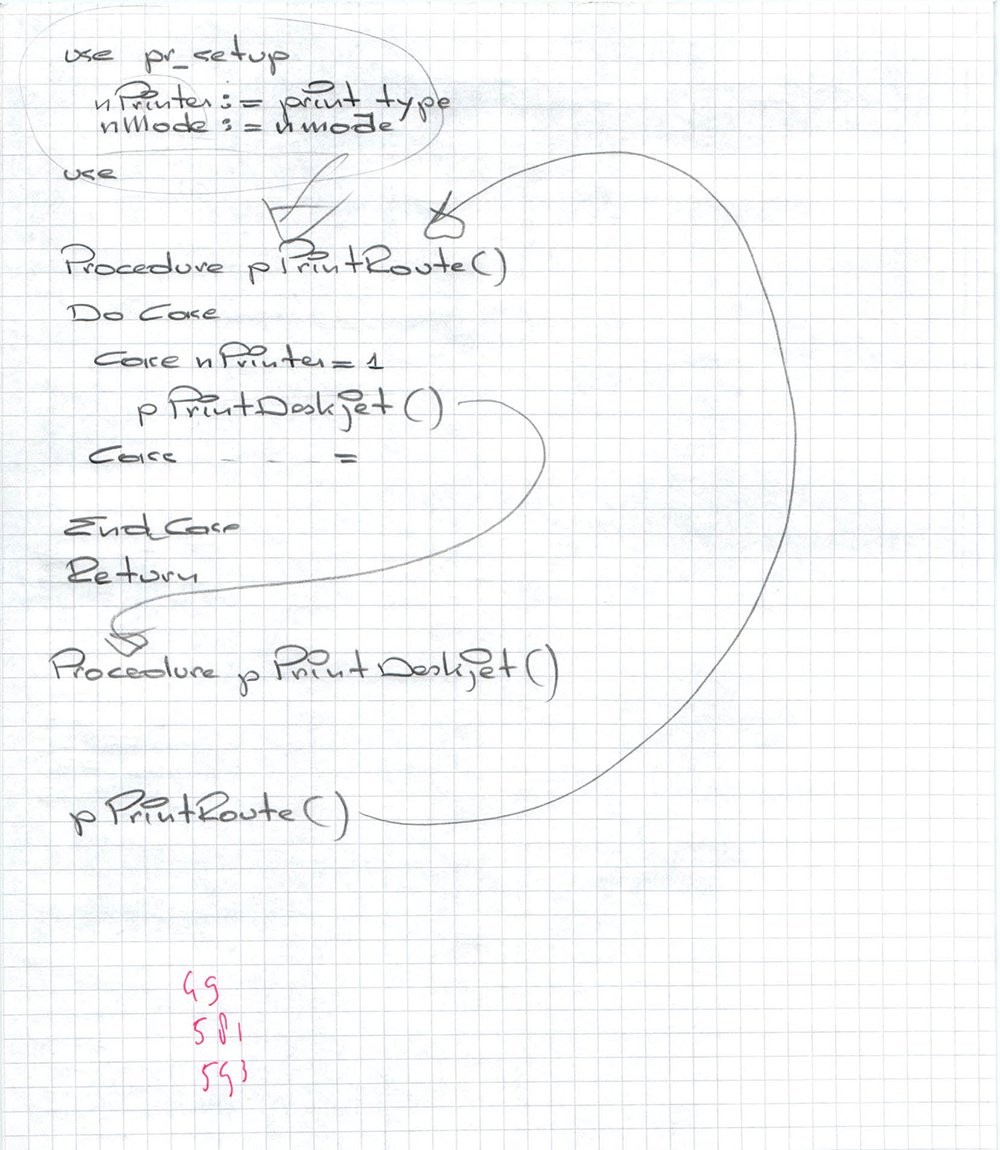 use pr_setup
nPrinter := print_type
nMode := nmode
use
Procedure pPrintRoute()
Do Case
Case nPrinter = 1
pPrintDeskjet()
Case - - - - =
End Case
Return
Procedure pPrintDeskjet()
pPrintRoute()
49
581
593